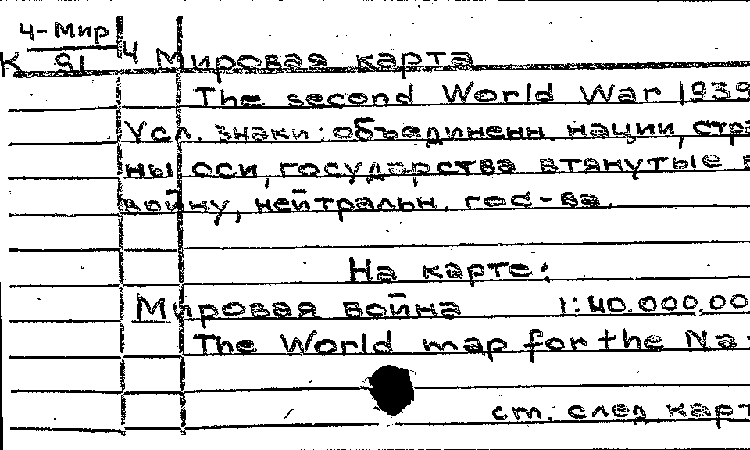 4-Мир
К 81 4 Мировая карта
The second World War 1939
Усл. знаки: объединенн. нации, стра
ны оси, государства втянутые в
войну, нейтральн. гос-ва.
На карте:
Мировая война 1:40.000.00
The World map for the Na
см. след карт